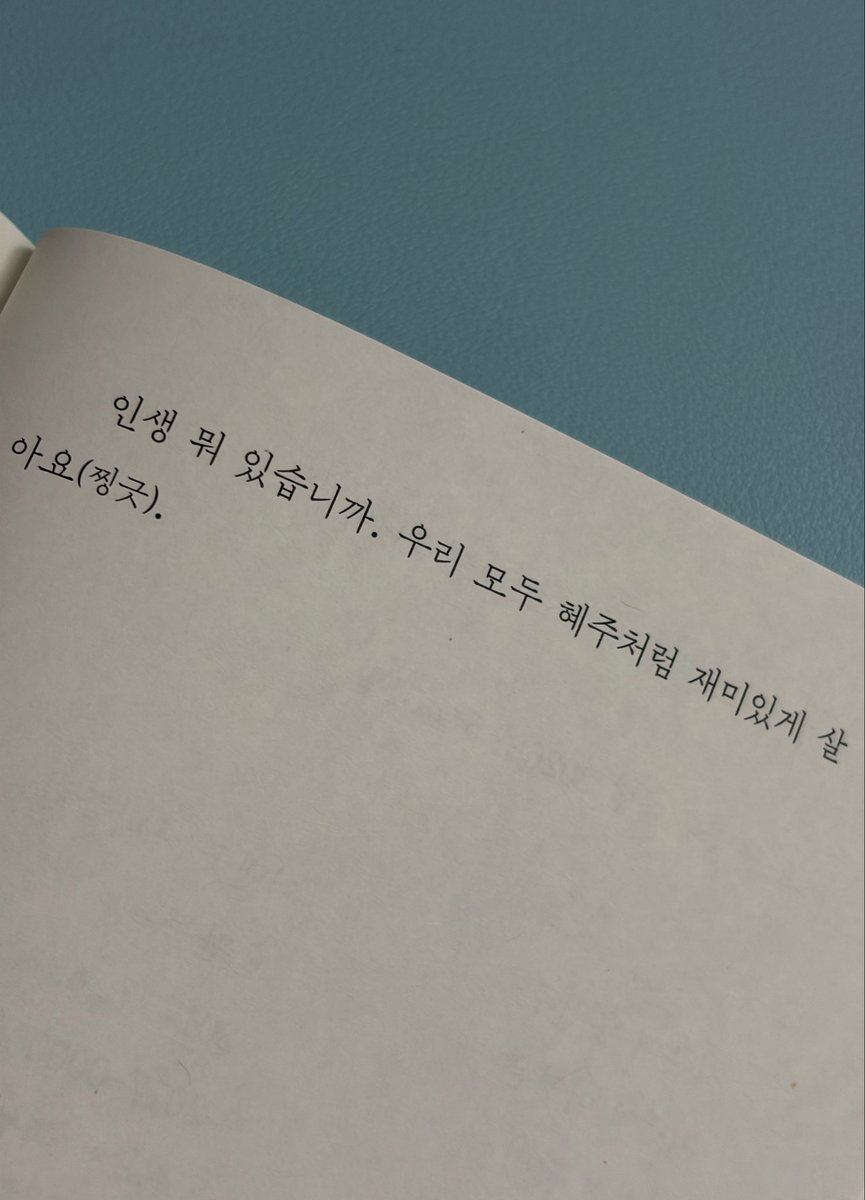 인생 뭐 있습니까. 우리 모두 혜주처럼 재미있게 살
아요(찡긋).